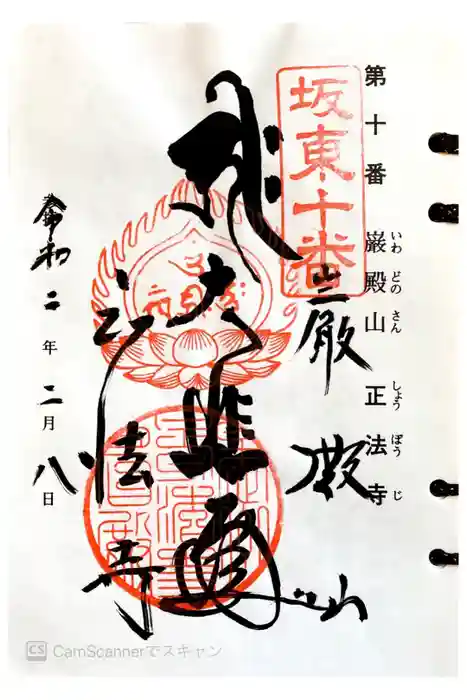 第十番 巌殿山 正法寺
いわ どの さん しょう ぼう じ
坂東十番
巌殿山
大悲殿
正法寺
令和二年二月八日
CS CamScannerでスキャン